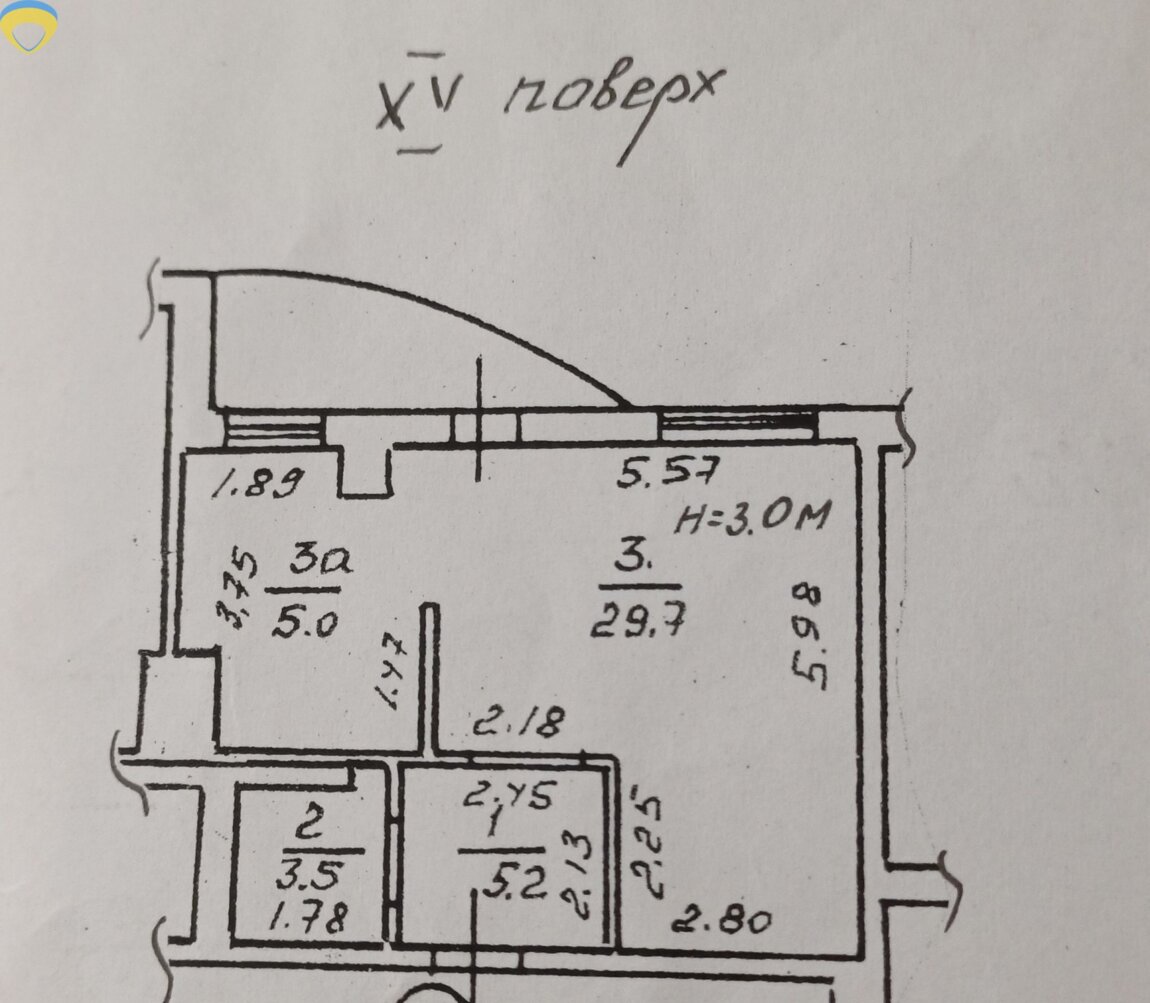 XIV поверх
1.89
5.57
H=3.0м
3а
5.0
3,75
3.
29.7
5.98
1.47
2.18
2.45
1
5.2
2.13
2.25
2
3.5
1.78
2.80